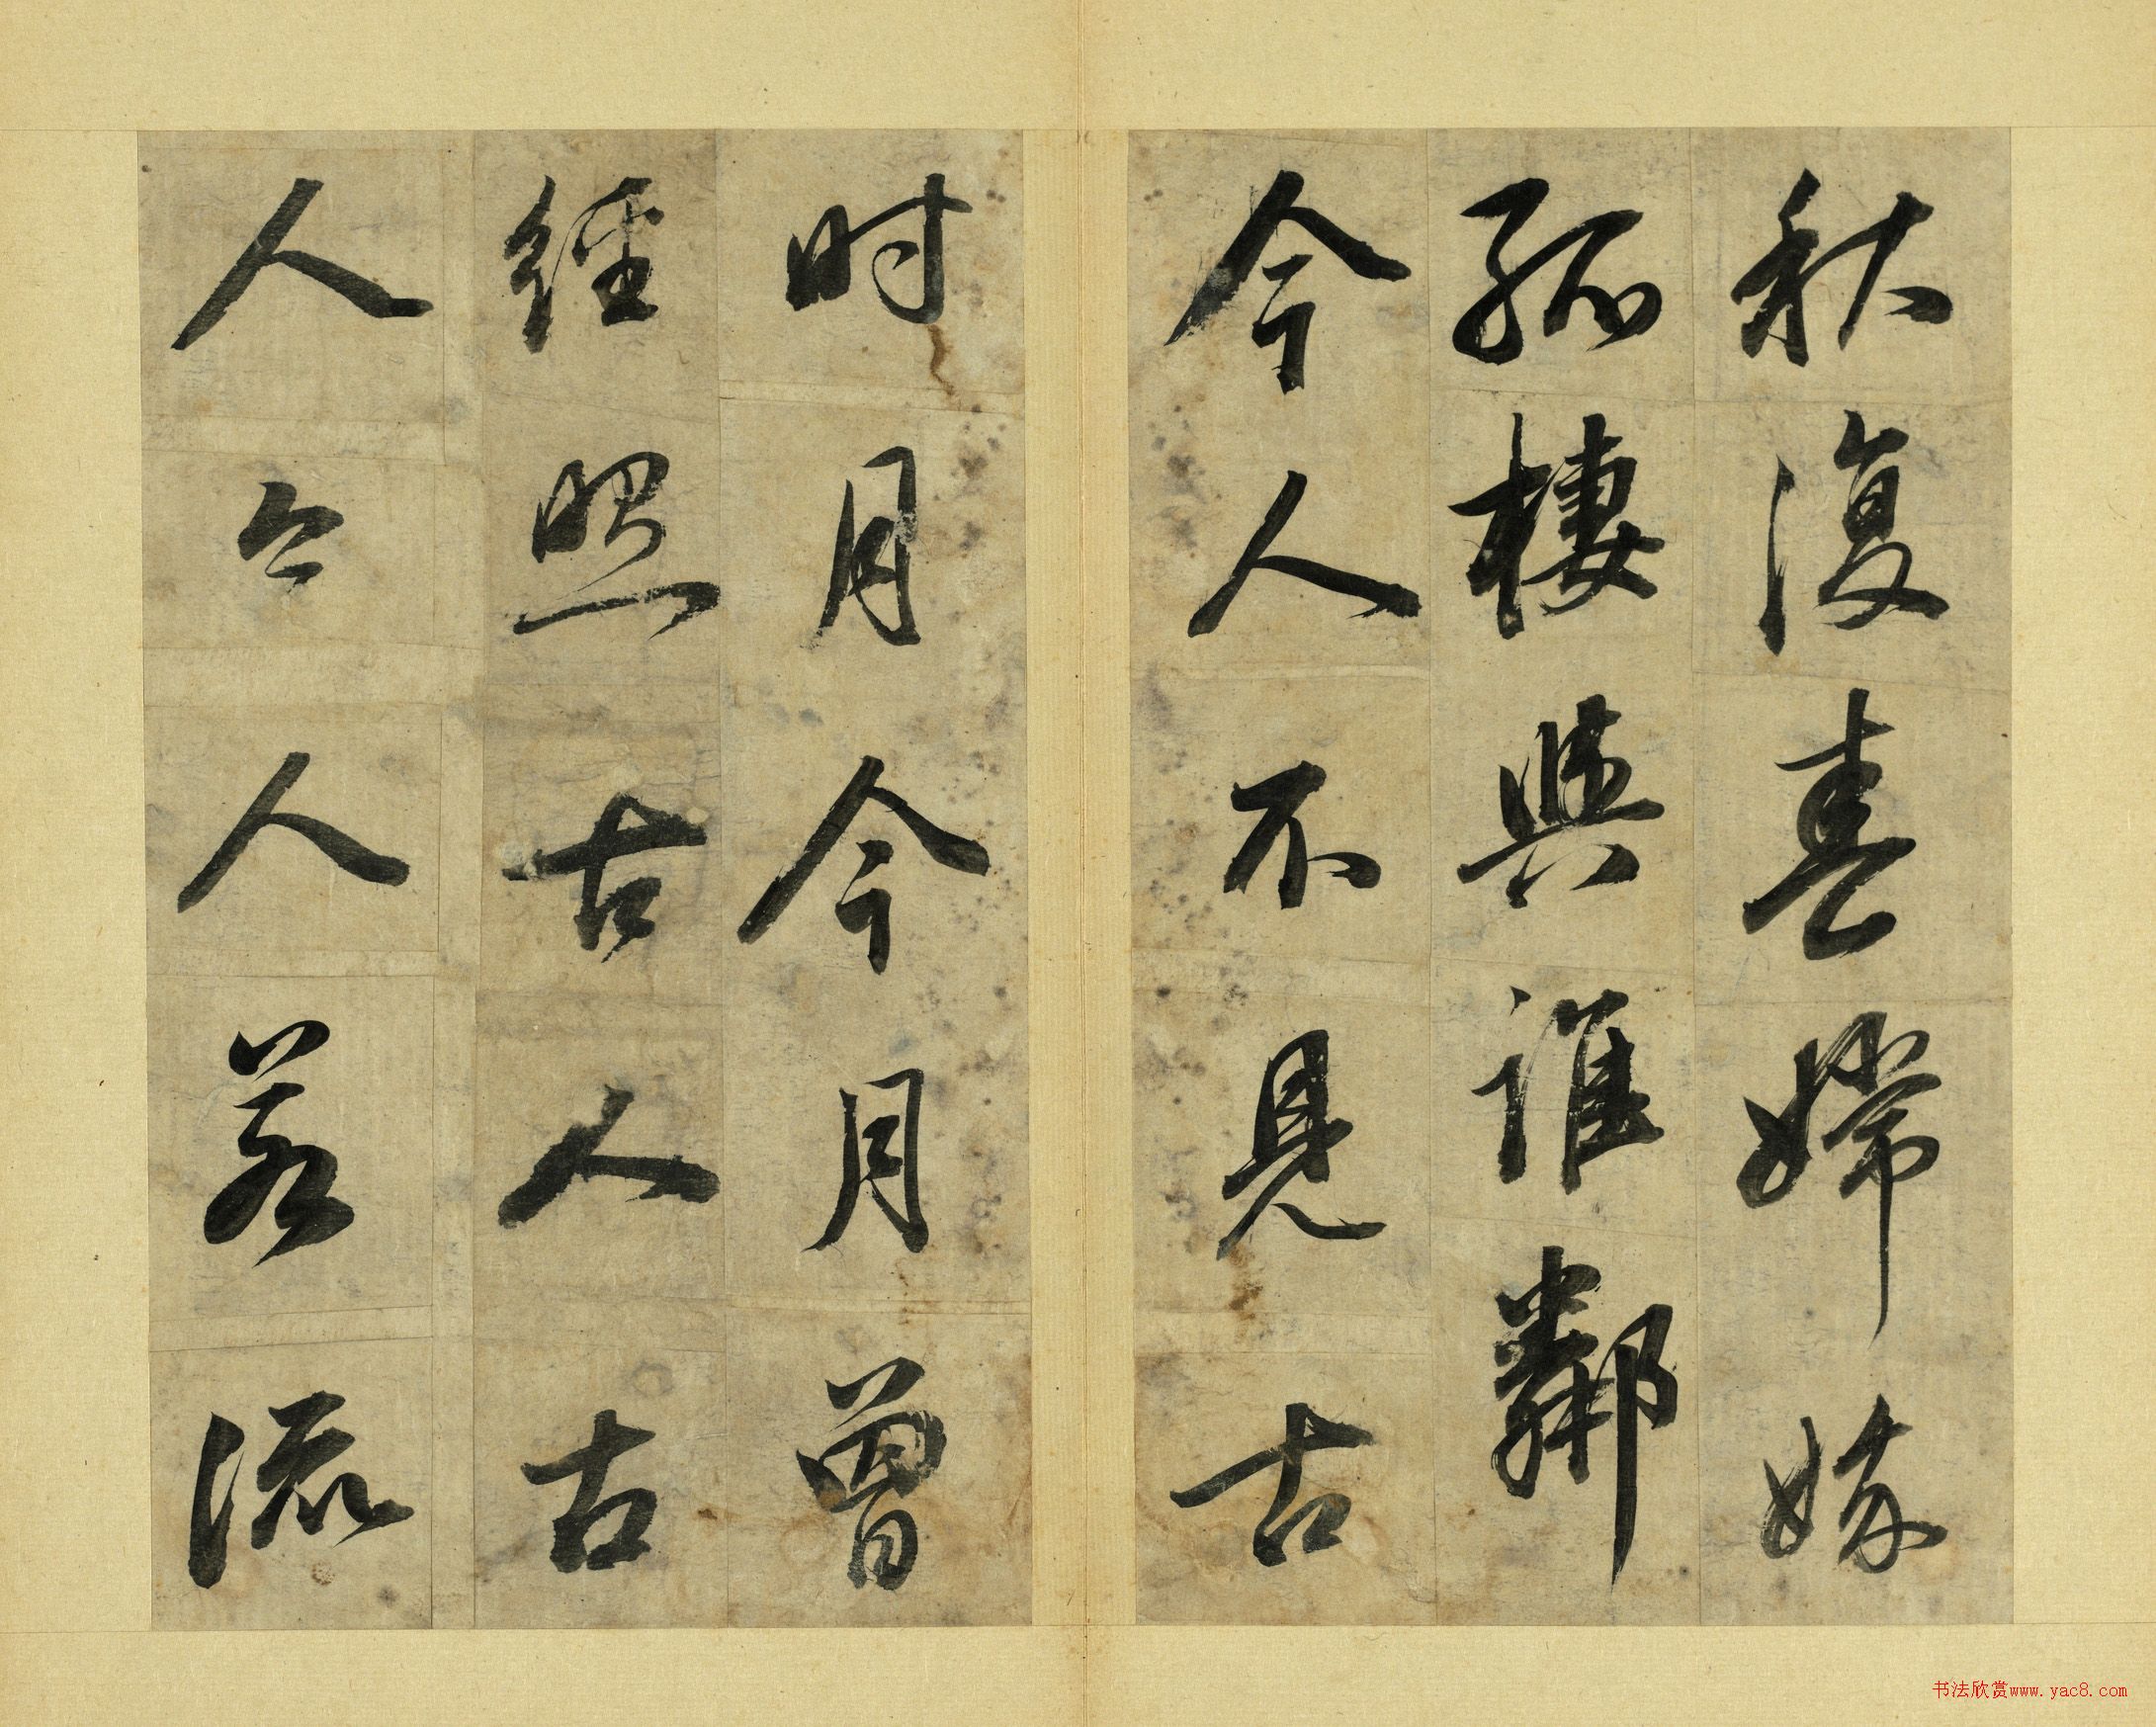 秋復春嫦娥
孤棲與誰鄰
今人不見古
时月今月曾
經照古人古
人今人若流
书法欣赏www.yac8.com